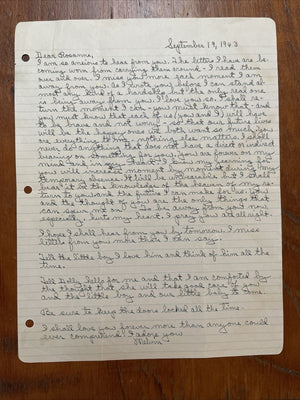 September 19, 1943
Dear Rosanne,
I am so anxious to hear from you. The letters I have are be-
coming worn from carrying them around - I read them
over and over. I miss you more each moment I am
away from you. As I wrote you before I can stand al-
most any kind of a hardship but the only real one
is being away from you. I love you so. I shall re-
turn the moment I can - you must know that - and
you must know that each of us you and I will have
to be brave and not worry - so that our future lives
will be the happy ones we both want so much. You
are everything to me, nothing else matters. I shall
never do anything that does not have a direct or indirect
bearing on something for you. You are forever on my
mind and in my heart and my yearning for
you will increase moment by moment during my
temporary absence. It will be unbearable but I shall
bear it on the knowledge of the heaven of my re-
turn to you and the future I can make for us. You
and the thought of you are the only things that
can spur me on. To be away from you now
especially, hurts my heart. I pray for us all night.
I hope I shall hear from you by tomorrow. I miss
letters from you more than I can say.
Tell the little boy I love him and think of him all the
time.
Tell Dolly hello for me and that I am comforted by
the thought that she will take good care of you
and the little boy and our little baby to come.
Be sure to keep the doors locked all the time.
I shall love you forever more than anyone could
ever comprehend. I adore you
Melvin